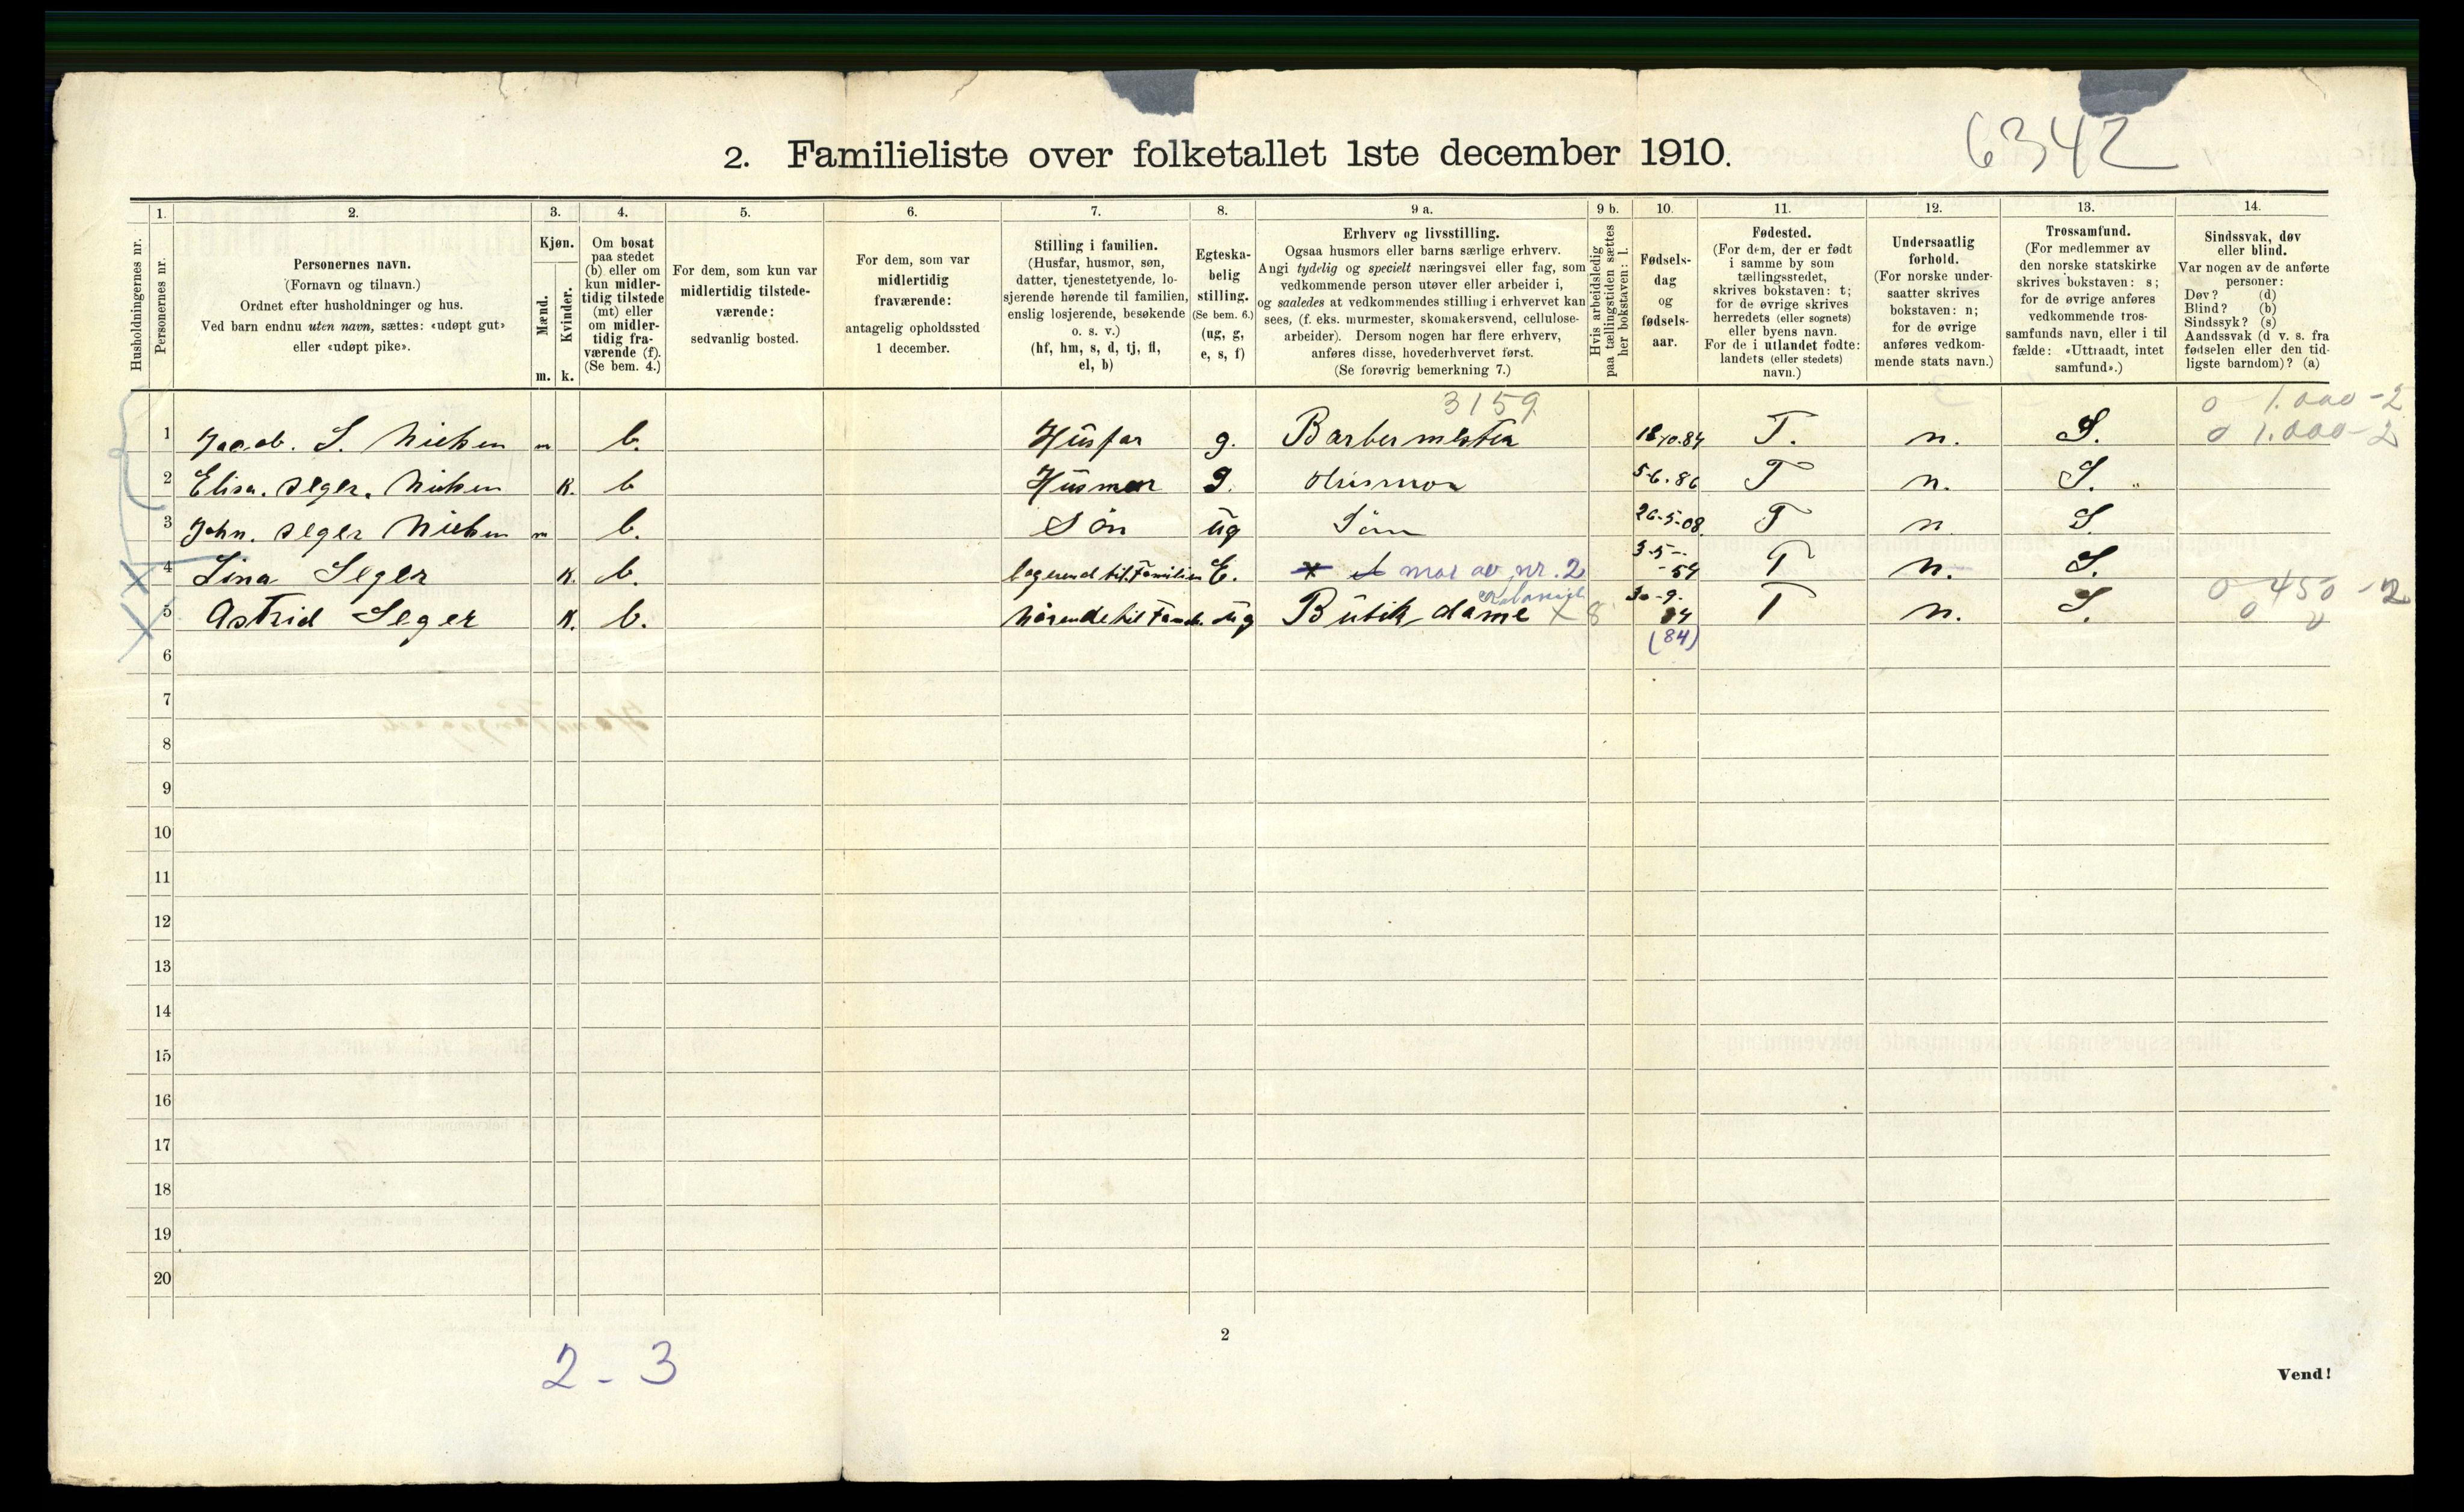 6342
2. Familieliste over folketallet 1ste december 1910.
1. 2. 3. 4. 5. 6. 7. 8. 9 a. 9 b. 10. 11. 12. 13. 14.
Husholdningernes nr.
Personernes nr.
Personernes navn.
(Fornavn og tilnavn.)
Ordnet efter husholdninger og hus.
Ved barn endnu uten navn, sættes: «udøpt gut»
eller «udøpt pike».
Kjøn.
Mænd.
Kvinder.
m. k.
Om bosat
paa stedet
(b) eller om
kun midler-
tidig tilstede
(mt) eller
om midler-
tidig fra-
værende (f).
(Se bem. 4.)
For dem, som kun var
midlertidig tilstede-
værende:
sedvanlig bosted.
For dem, som var
midlertidig
fraværende:
antagelig opholdssted
1 december.
Stilling i familien.
(Husfar, husmor, søn,
datter, tjenestetyende, lo-
sjerende hørende til familien,
enslig losjerende, besøkende
o. s. v.)
(hf, hm, s, d, tj, fl,
el, b)
Egteska-
belig
stilling.
(Se bem. 6.)
(ug, g,
e, s, f)
Erhverv og livsstilling.
Ogsaa husmors eller barns særlige erhverv.
Angi tydelig og specielt næringsvei eller fag, som
vedkommende person utøver eller arbeider i,
og saaledes at vedkommendes stilling i erhvervet kan
sees, (f. eks. murmester, skomakersvend, cellulose-
arbeider). Dersom nogen har flere erhverv,
anføres disse, hovederhvervet først.
(Se forøvrig bemerkning 7.)
Hvis arbeidsledig
paa tællingstiden sættes
her bokstaven: l.
Fødsels-
dag
og
fødsels-
aar.
Fødested.
(For dem, der er født
i samme by som
tællingsstedet,
skrives bokstaven: t;
for de øvrige skrives
herredets (eller sognets)
eller byens navn.
For de i utlandet fødte:
landets (eller stedets)
navn.)
Undersaatlig
forhold.
(For norske under-
saatter skrives
bokstaven: n;
for de øvrige
anføres vedkom-
mende stats navn.)
Trossamfund.
(For medlemmer av
den norske statskirke
skrives bokstaven: s;
for de øvrige anføres
vedkommende tros-
samfunds navn, eller i til
fælde: «Uttraadt, intet
samfund».)
Sindssvak, døv
eller blind.
Var nogen av de anførte
personer:
Døv? (d)
Blind? (b)
Sindssyk? (s)
Aandssvak (d v. s. fra
fødselen eller den tid-
ligste barndom)? (a)
3159 0 1.000-2
1 Jacob. S. Nielsen m b. Husfar g. Barbermester 18-10-84 T. n. S. 0 1.000-2
2 Elisa. Seger. Nielsen K. b Husmor g. Husmor 5-6.86 T n. S.
3 John. Seger Nielsen m b. Sön ug Sön 26-5-08. T n S
4 Lina Seger K. b. logerend til Familien E. mor av nr. 2 3-5-54 T n. S.
5 Astrid Seger K. b. hörende til Famil. Ug Butik dame x 8 30-9. 84 T n. S. 0 450-2
(84)
6
7
8
9
10
11
12
13
14
15
16
17
18
19
20
2
2-3
Vend!